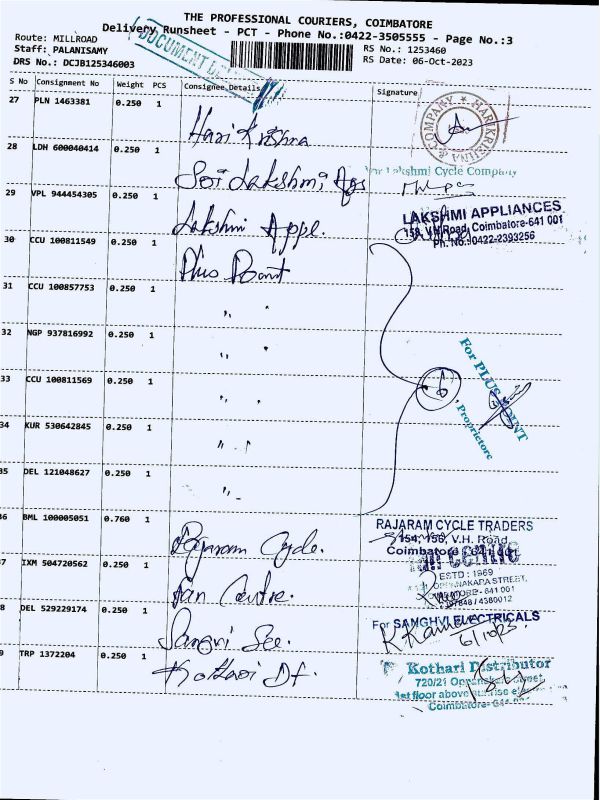 THE PROFESSIONAL COURIERS, COIMBATORE
Delivery Runsheet - PCT - Phone No.:0422-3505555 - Page No.:3
Route: MILLROAD
RS No.: 1253460
Staff: PALANISAMY
RS Date: 06-Oct-2023
DRS No.: DCJB125346003
DOCUMENT
S No Consignment No Weight PCS Consignee Details Signature
27 PLN 1463381 0.250 1 Hari Krishna
& COMPANY * HARIKRISHNA
28 LDH 600040414 0.250 1 Sri Lakshmi Ags
Lakshmi Cycle Company
29 VPL 944454305 0.250 1 Lakshmi Appl.
LAKSHMI APPLIANCES
158, V.H Road, Coimbatore-641 001
Ph. No.:0422-2393256
30 CCU 100811549 0.250 1 Plus Point
31 CCU 100857753 0.250 1 "
32 NGP 937816992 0.250 1 "
33 CCU 100811569 0.250 1 "
6
For PLUS POINT
Proprietore
34 KUR 530642845 0.250 1 "
35 DEL 121048627 0.250 1 "
36 BML 100005051 0.760 1 Rajaram Cycle.
RAJARAM CYCLE TRADERS
154, 156, V.H. Road,
Coimbatore - 641 001
37 IXM 504720562 0.250 1 Fan Centre.
ESTD : 1969
OPPANAKARA STREET,
COIMBATORE - 641 001
4380012
38 DEL 529229174 0.250 1 Sangvi Ele.
For SAMGHVI ELECTRICALS
6/10/23.
39 TRP 1372204 0.250 1 Kothari Df.
Kothari Distributor
720/21 Oppanakara Street,
1st floor above
Coimbatore- 641